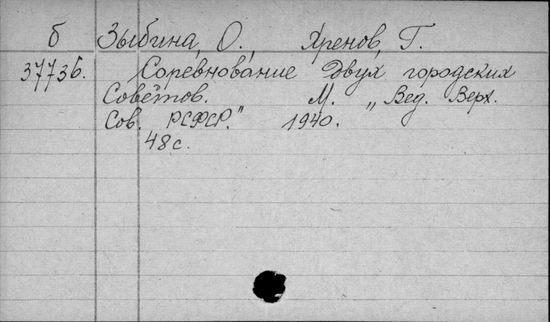 б Зыбина, О., Хренов, Г.
37736. Соревнование двух городских
Советов. М. „Вед. Верх.
Сов. РСФСР." 1940.
48 с.